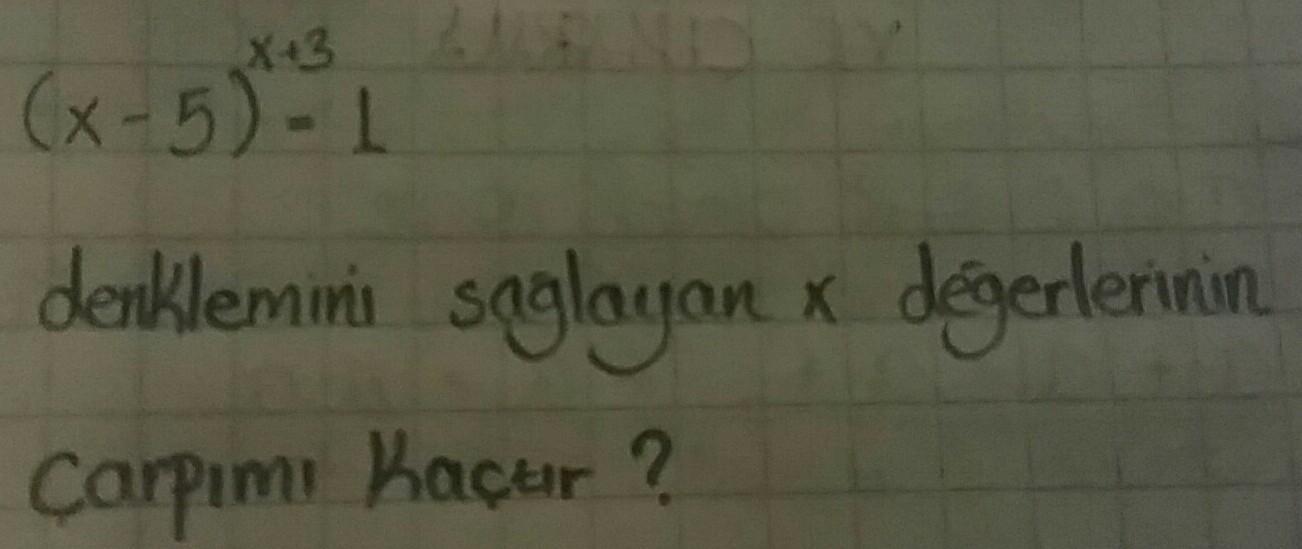 (x-5)^{x+3} = 1
denklemini sağlayan x değerlerinin
Çarpımı Kaçtır ?